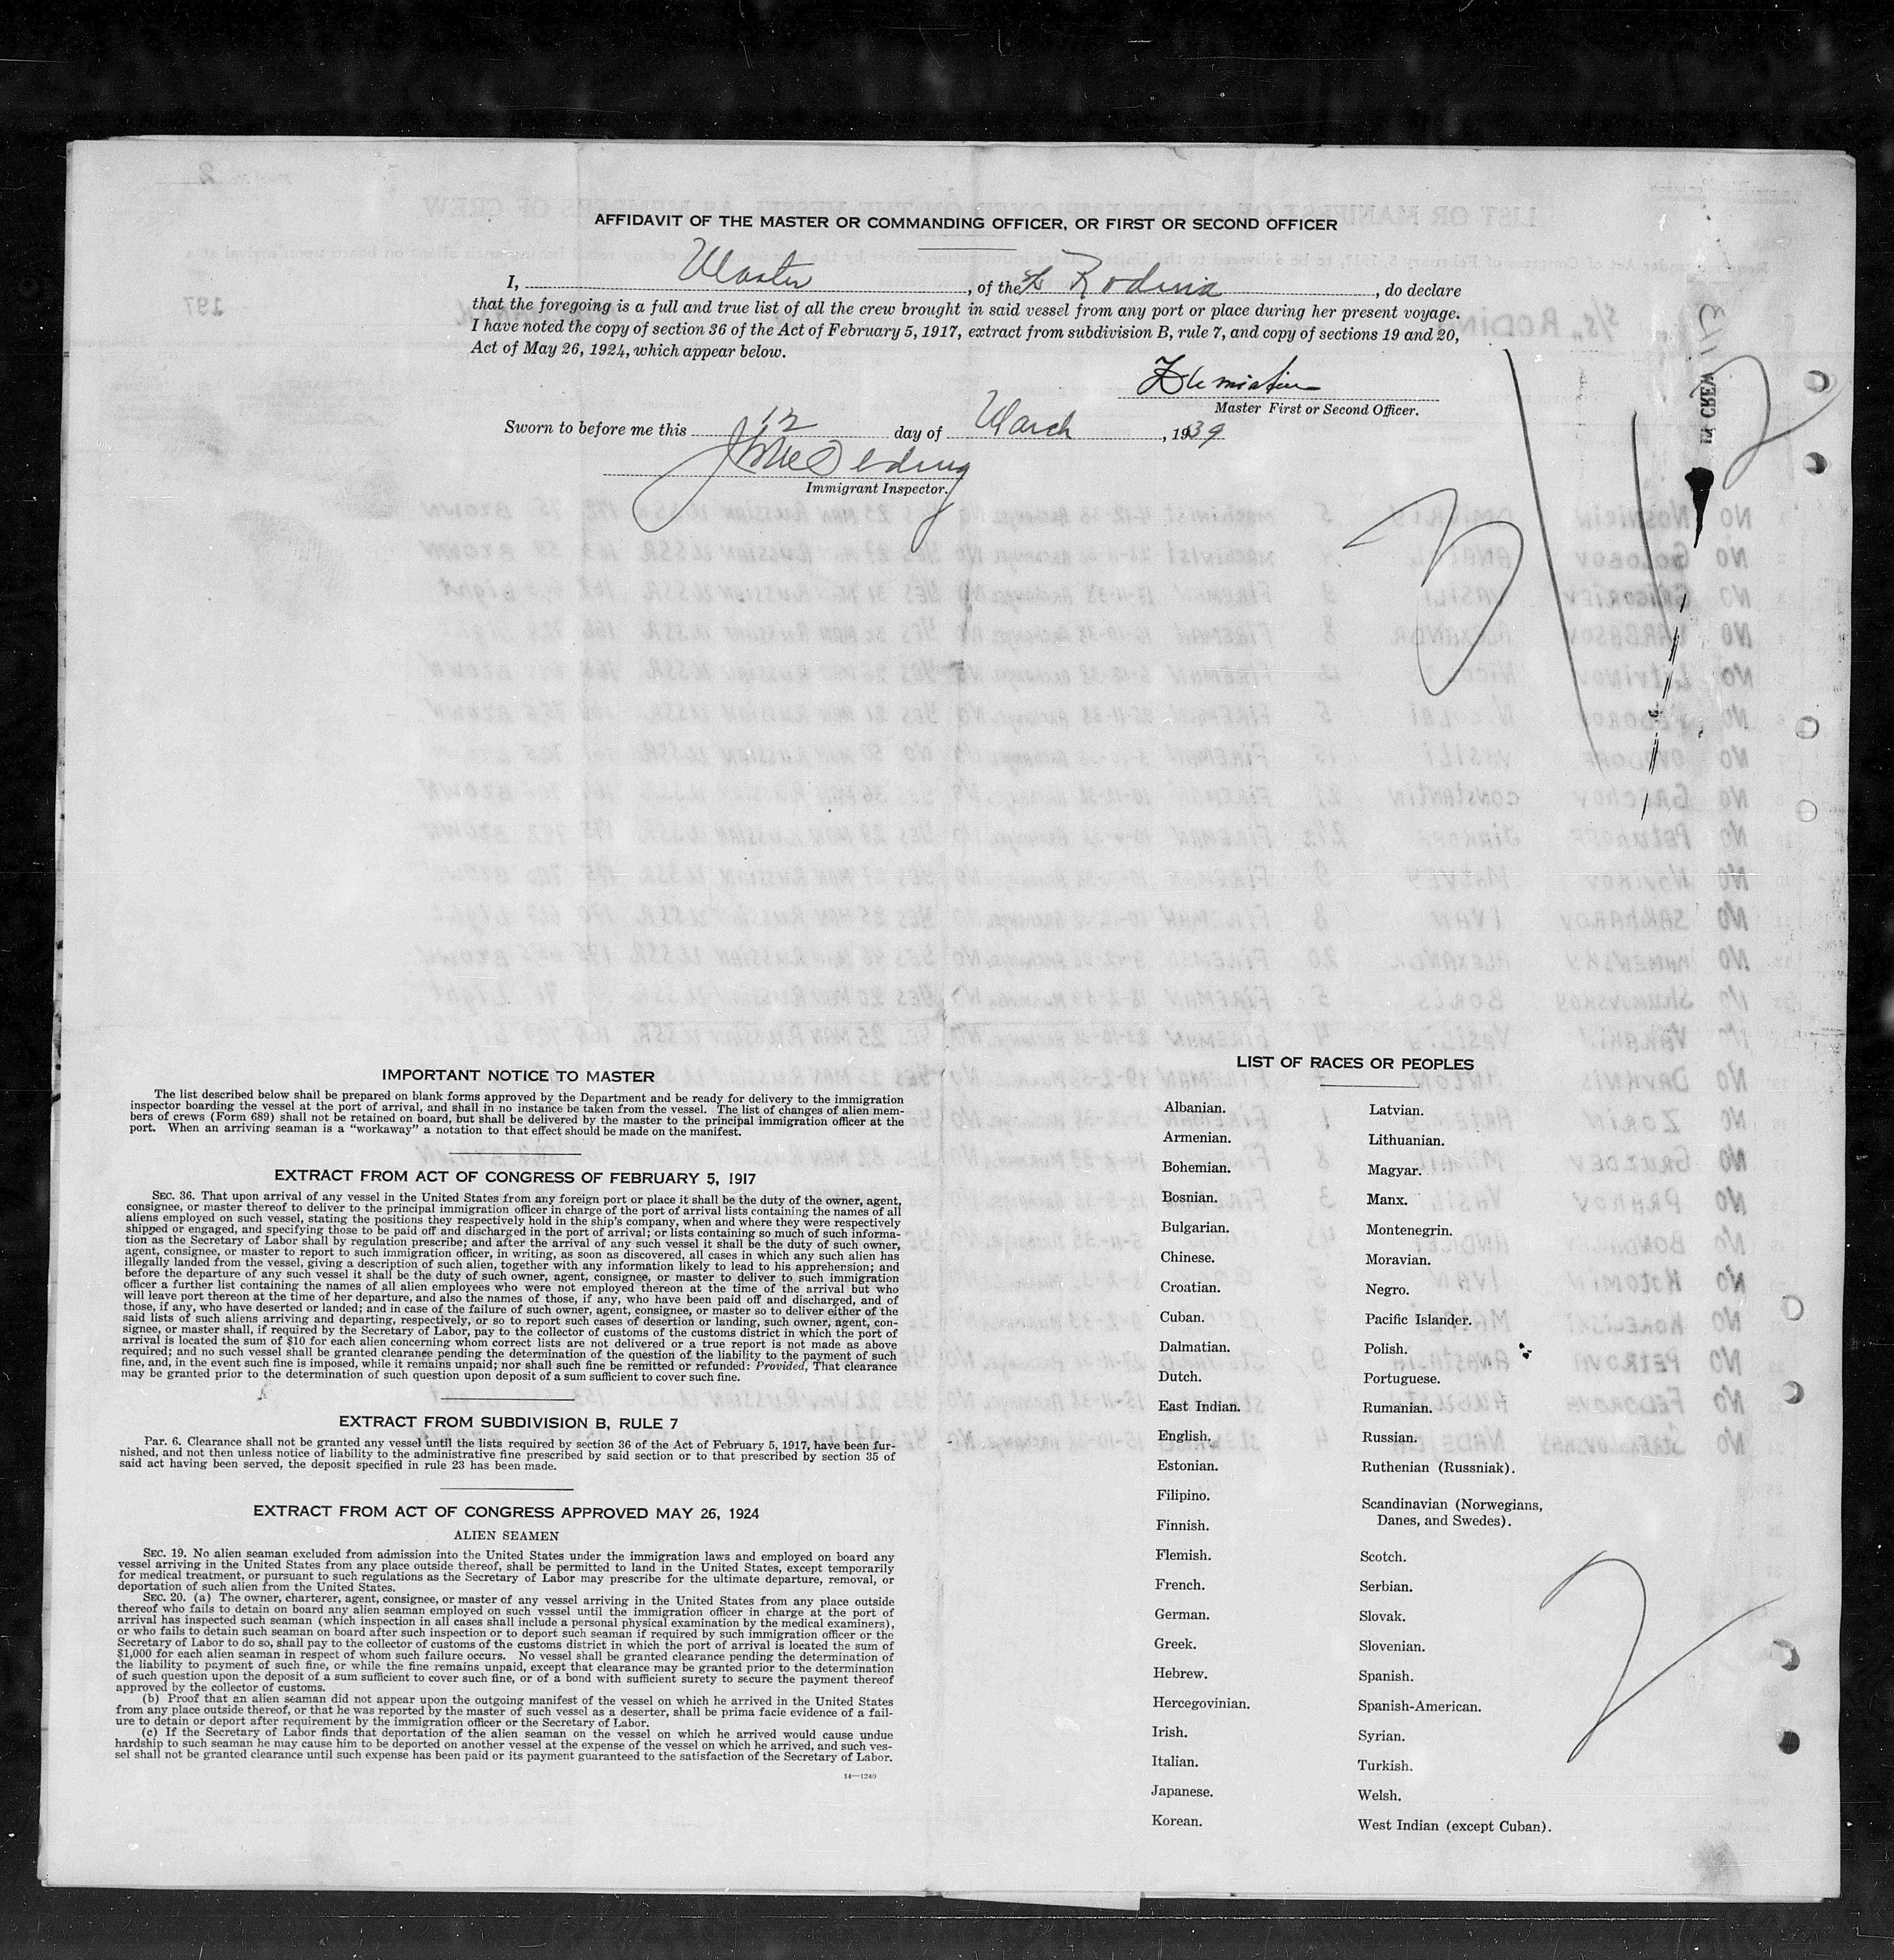 AFFIDAVIT OF THE MASTER OR COMMANDING OFFICER, OR FIRST OR SECOND OFFICER
I, Master, of the Rodina, do declare
that the foregoing is a full and true list of all the crew brought in said vessel from any port or place during her present voyage.
I have noted the copy of section 36 of the Act of February 5, 1917, extract from subdivision B, rule 7, and copy of sections 19 and 20,
Act of May 26, 1924, which appear below.
Master First or Second Officer.
Sworn to before me this 12 day of March, 1939
Immigrant Inspector.
IMPORTANT NOTICE TO MASTER
The list described below shall be prepared on blank forms approved by the Department and be ready for delivery to the immigration
inspector boarding the vessel at the port of arrival, and shall in no instance be taken from the vessel. The list of changes of alien mem-
bers of crews (Form 689) shall not be retained on board, but shall be delivered by the master to the principal immigration officer at the
port. When an arriving seaman is a "workaway" a notation to that effect should be made on the manifest.
EXTRACT FROM ACT OF CONGRESS OF FEBRUARY 5, 1917
SEC. 36. That upon arrival of any vessel in the United States from any foreign port or place it shall be the duty of the owner, agent,
consignee, or master thereof to deliver to the principal immigration officer in charge of the port of arrival lists containing the names of all
aliens employed on such vessel, stating the positions they respectively hold in the ship's company, when and where they were respectively
shipped or engaged, and specifying those to be paid off and discharged in the port of arrival; or lists containing so much of such informa-
tion as the Secretary of Labor shall by regulation prescribe; and after the arrival of any such vessel it shall be the duty of such owner,
agent, consignee, or master to report to such immigration officer, in writing, as soon as discovered, all cases in which any such alien has
illegally landed from the vessel, giving a description of such alien, together with any information likely to lead to his apprehension; and
before the departure of any such vessel it shall be the duty of such owner, agent, consignee, or master to deliver to such immigration
officer a further list containing the names of all alien employees who were not employed thereon at the time of the arrival but who
will leave port thereon at the time of her departure, and also the names of those, if any, who have been paid off and discharged, and of
those, if any, who have deserted or landed; and in case of the failure of such owner, agent, consignee, or master so to deliver either of the
said lists of such aliens arriving and departing, respectively, or so to report such cases of desertion or landing, such owner, agent, con-
signee, or master shall, if required by the Secretary of Labor, pay to the collector of customs of the customs district in which the port of
arrival is located the sum of $10 for each alien concerning whom correct lists are not delivered or a true report is not made as above
required; and no such vessel shall be granted clearance pending the determination of the question of the liability to the payment of such
fine, and, in the event such fine is imposed, while it remains unpaid; nor shall such fine be remitted or refunded: Provided, That clearance
may be granted prior to the determination of such question upon deposit of a sum sufficient to cover such fine.
EXTRACT FROM SUBDIVISION B, RULE 7
Par. 6. Clearance shall not be granted any vessel until the lists required by section 36 of the Act of February 5, 1917, have been fur-
nished, and not then unless notice of liability to the administrative fine prescribed by said section or to that prescribed by section 35 of
said act having been served, the deposit specified in rule 23 has been made.
EXTRACT FROM ACT OF CONGRESS APPROVED MAY 26, 1924
ALIEN SEAMEN
SEC. 19. No alien seaman excluded from admission into the United States under the immigration laws and employed on board any
vessel arriving in the United States from any place outside thereof, shall be permitted to land in the United States, except temporarily
for medical treatment, or pursuant to such regulations as the Secretary of Labor may prescribe for the ultimate departure, removal, or
deportation of such alien from the United States.
SEC. 20. (a) The owner, charterer, agent, consignee, or master of any vessel arriving in the United States from any place outside
thereof who fails to detain on board any alien seaman employed on such vessel until the immigration officer in charge at the port of
arrival has inspected such seaman (which inspection in all cases shall include a personal physical examination by the medical examiners),
or who fails to detain such seaman on board after such inspection or to deport such seaman if required by such immigration officer or the
Secretary of Labor to do so, shall pay to the collector of customs of the customs district in which the port of arrival is located the sum of
$1,000 for each alien seaman in respect of whom such failure occurs. No vessel shall be granted clearance pending the determination of
the liability to payment of such fine, or while the fine remains unpaid, except that clearance may be granted prior to the determination
of such question upon the deposit of a sum sufficient to cover such fine, or of a bond with sufficient surety to secure the payment thereof
approved by the collector of customs.
(b) Proof that an alien seaman did not appear upon the outgoing manifest of the vessel on which he arrived in the United States
from any place outside thereof, or that he was reported by the master of such vessel as a deserter, shall be prima facie evidence of a fail-
ure to detain or deport after requirement by the immigration officer or the Secretary of Labor.
(c) If the Secretary of Labor finds that deportation of the alien seaman on the vessel on which he arrived would cause undue
hardship to such seaman he may cause him to be deported on another vessel at the expense of the vessel on which he arrived, and such ves-
sel shall not be granted clearance until such expense has been paid or its payment guaranteed to the satisfaction of the Secretary of Labor.
14—1240
LIST OF RACES OR PEOPLES
Albanian.
Armenian.
Bohemian.
Bosnian.
Bulgarian.
Chinese.
Croatian.
Cuban.
Dalmatian.
Dutch.
East Indian.
English.
Estonian.
Filipino.
Finnish.
Flemish.
French.
German.
Greek.
Hebrew.
Hercegovinian.
Irish.
Italian.
Japanese.
Korean.
Latvian.
Lithuanian.
Magyar.
Manx.
Montenegrin.
Moravian.
Negro.
Pacific Islander.
Polish.
Portuguese.
Rumanian.
Russian.
Ruthenian (Russniak).
Scandinavian (Norwegians,
Danes, and Swedes).
Scotch.
Serbian.
Slovak.
Slovenian.
Spanish.
Spanish-American.
Syrian.
Turkish.
Welsh.
West Indian (except Cuban).